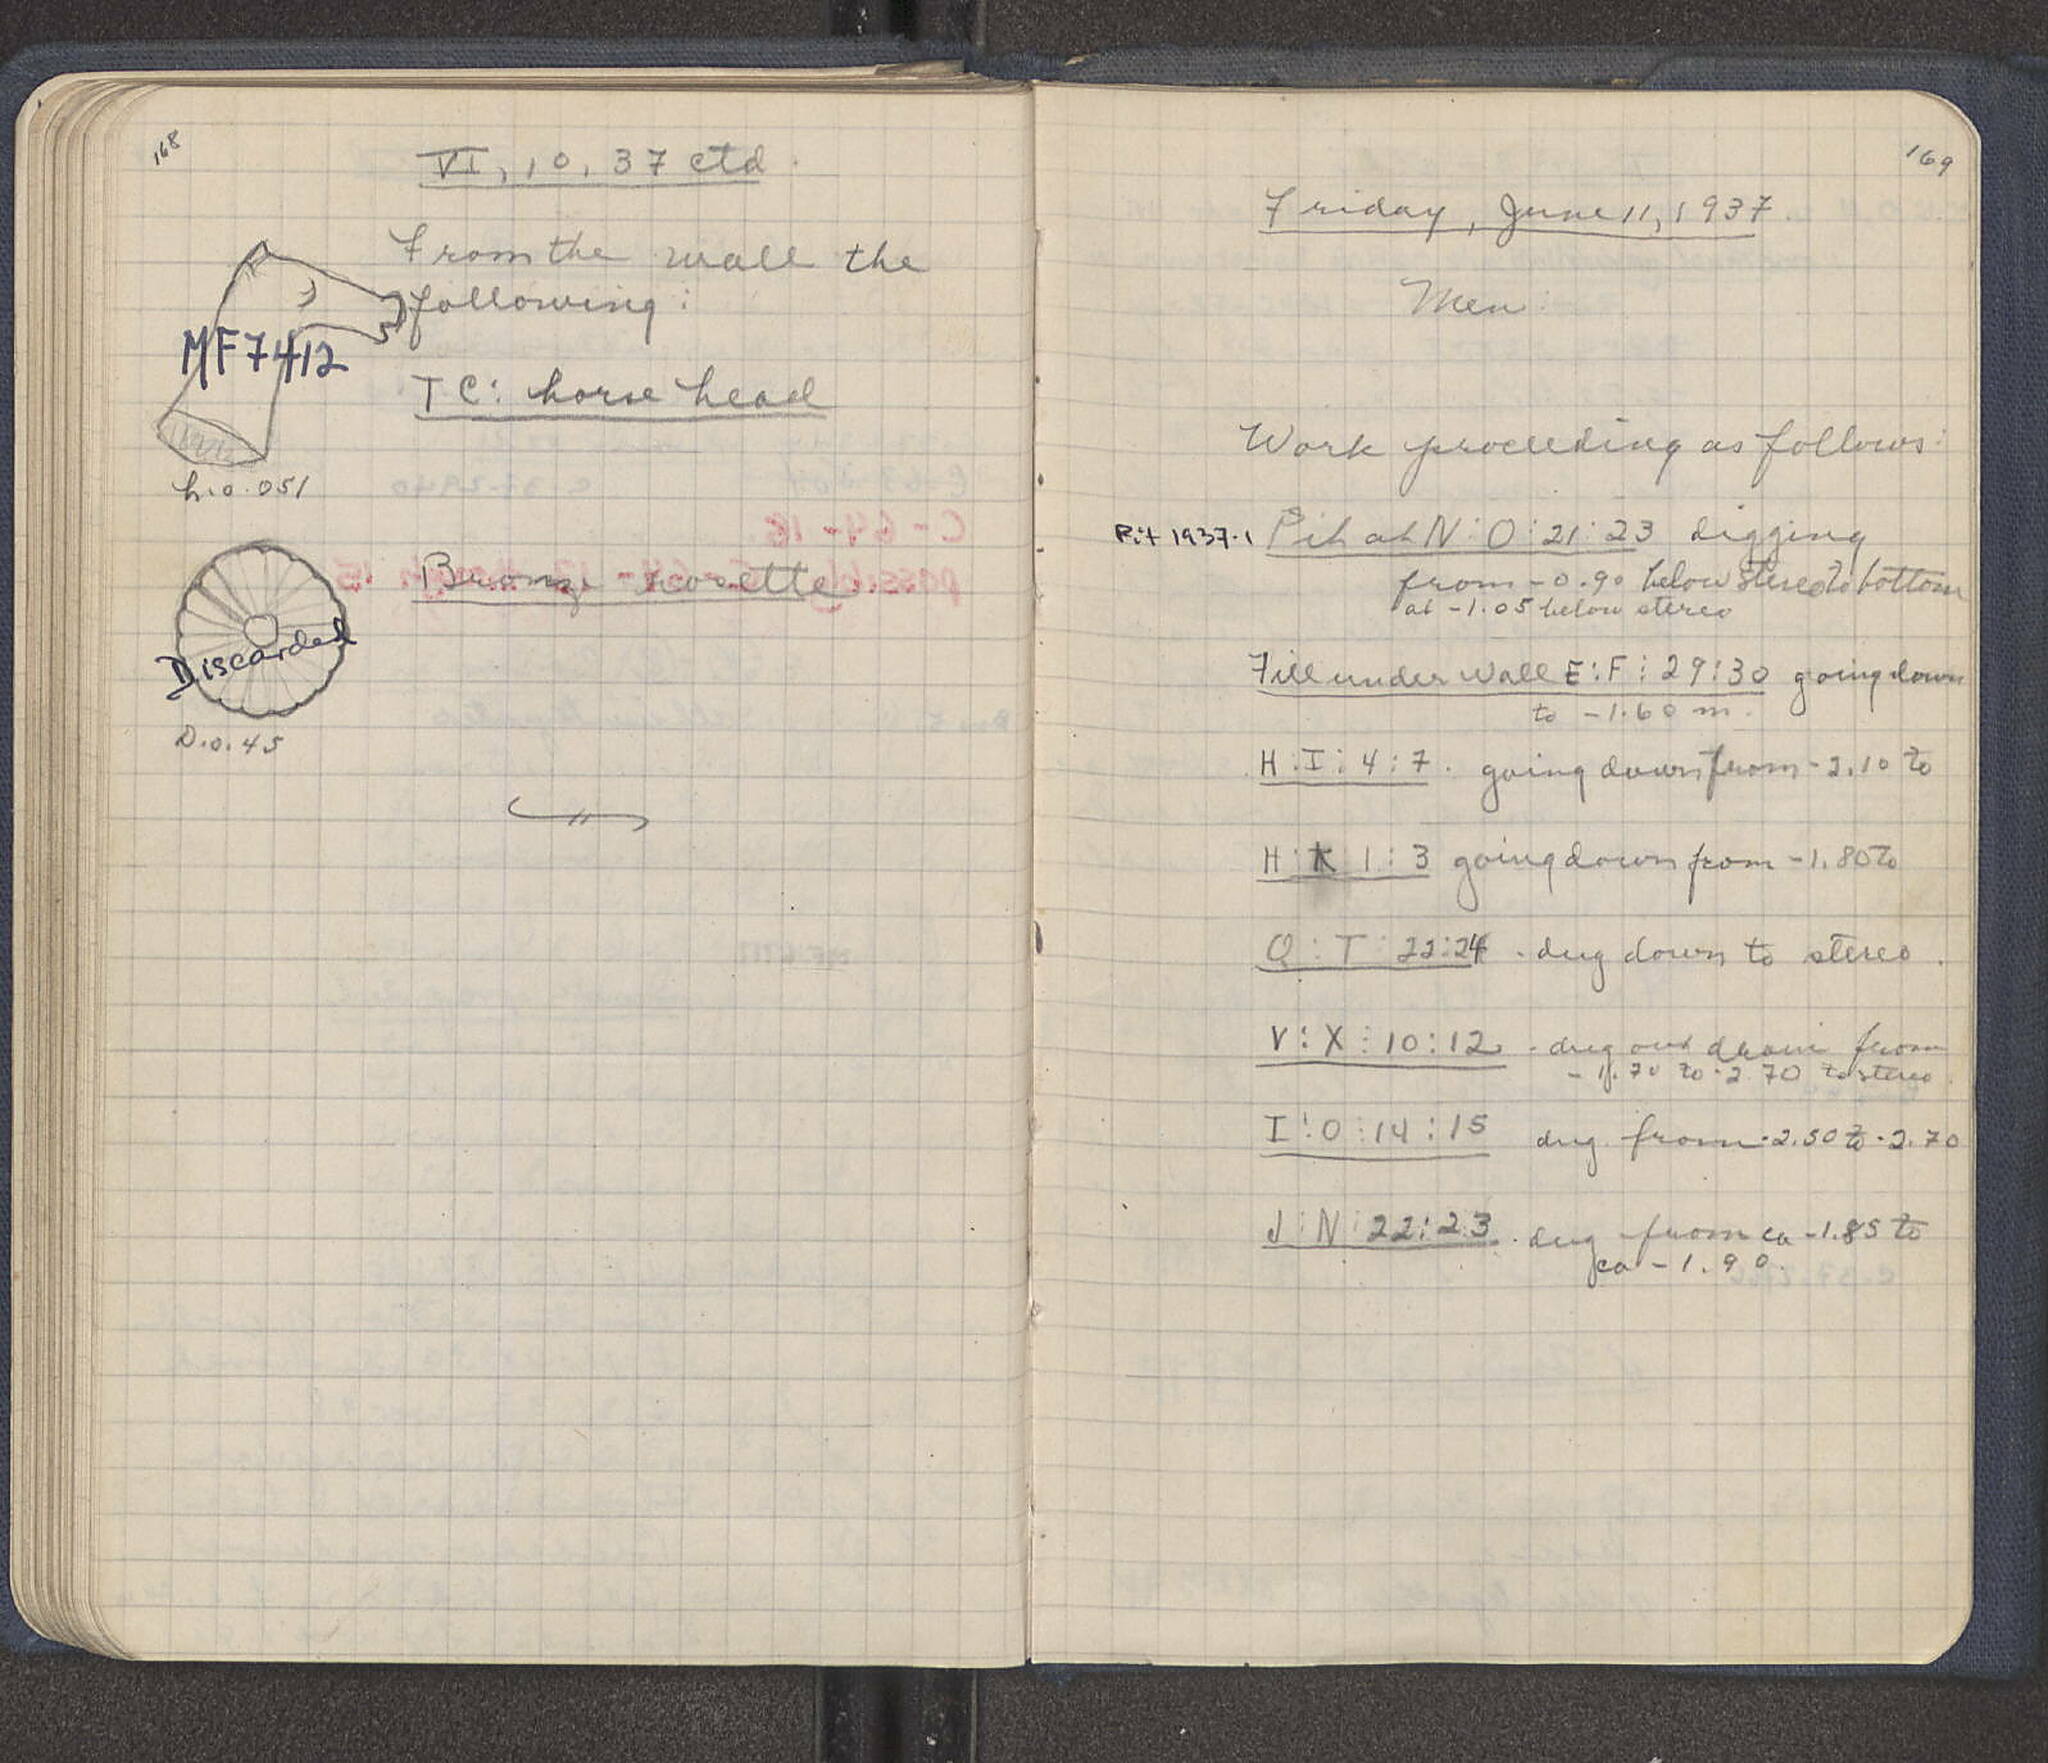 168
VI, 10, 37 ctd.
From the wall the
following:
MF7412
TC: horse head
h. 0.051
Bronze rosette
Discarded
D. 0.45
169
Friday, June 11, 1937.
Men:
Work proceeding as follows:
Pit 1937-1 Pit at N:O:21:23 digging
from -0.90 below stereo to bottom
at -1.05 below stereo
Fill under Wall E:F:29:30 going down
to -1.60 m.
H:I:4:7. going down from -2.10 to
H:K 1:3 going down from -1.80 to
Q:T:22:24 - dug down to stereo.
V:X:10:12 - dug out drain from
-1.70 to -2.70 to stereo.
I:O:14:15 dug from -2.50 to -2.70
J:N:22:23. dug from ca -1.85 to
ca -1.90.